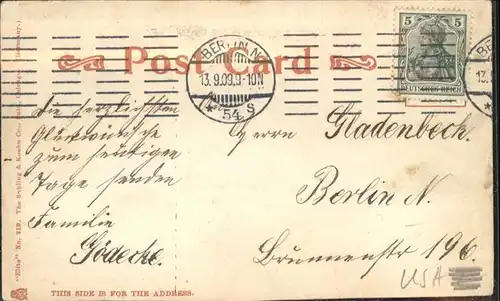 Post Card
BERLIN N.
13.9.09.9-10N
* 54 S
5 5
DEUTSCHES REICH
13.
Die herzlichsten
Glückwünsche
zum heutigen
Tage senden
Familie
Gödecke.
Herrn Gladenbeck.
Berlin N.
Brunnenstr 196.
USA
"Elite" No. 219. The Suhling & Koehn Co.
THIS SIDE IS FOR THE ADDRESS.